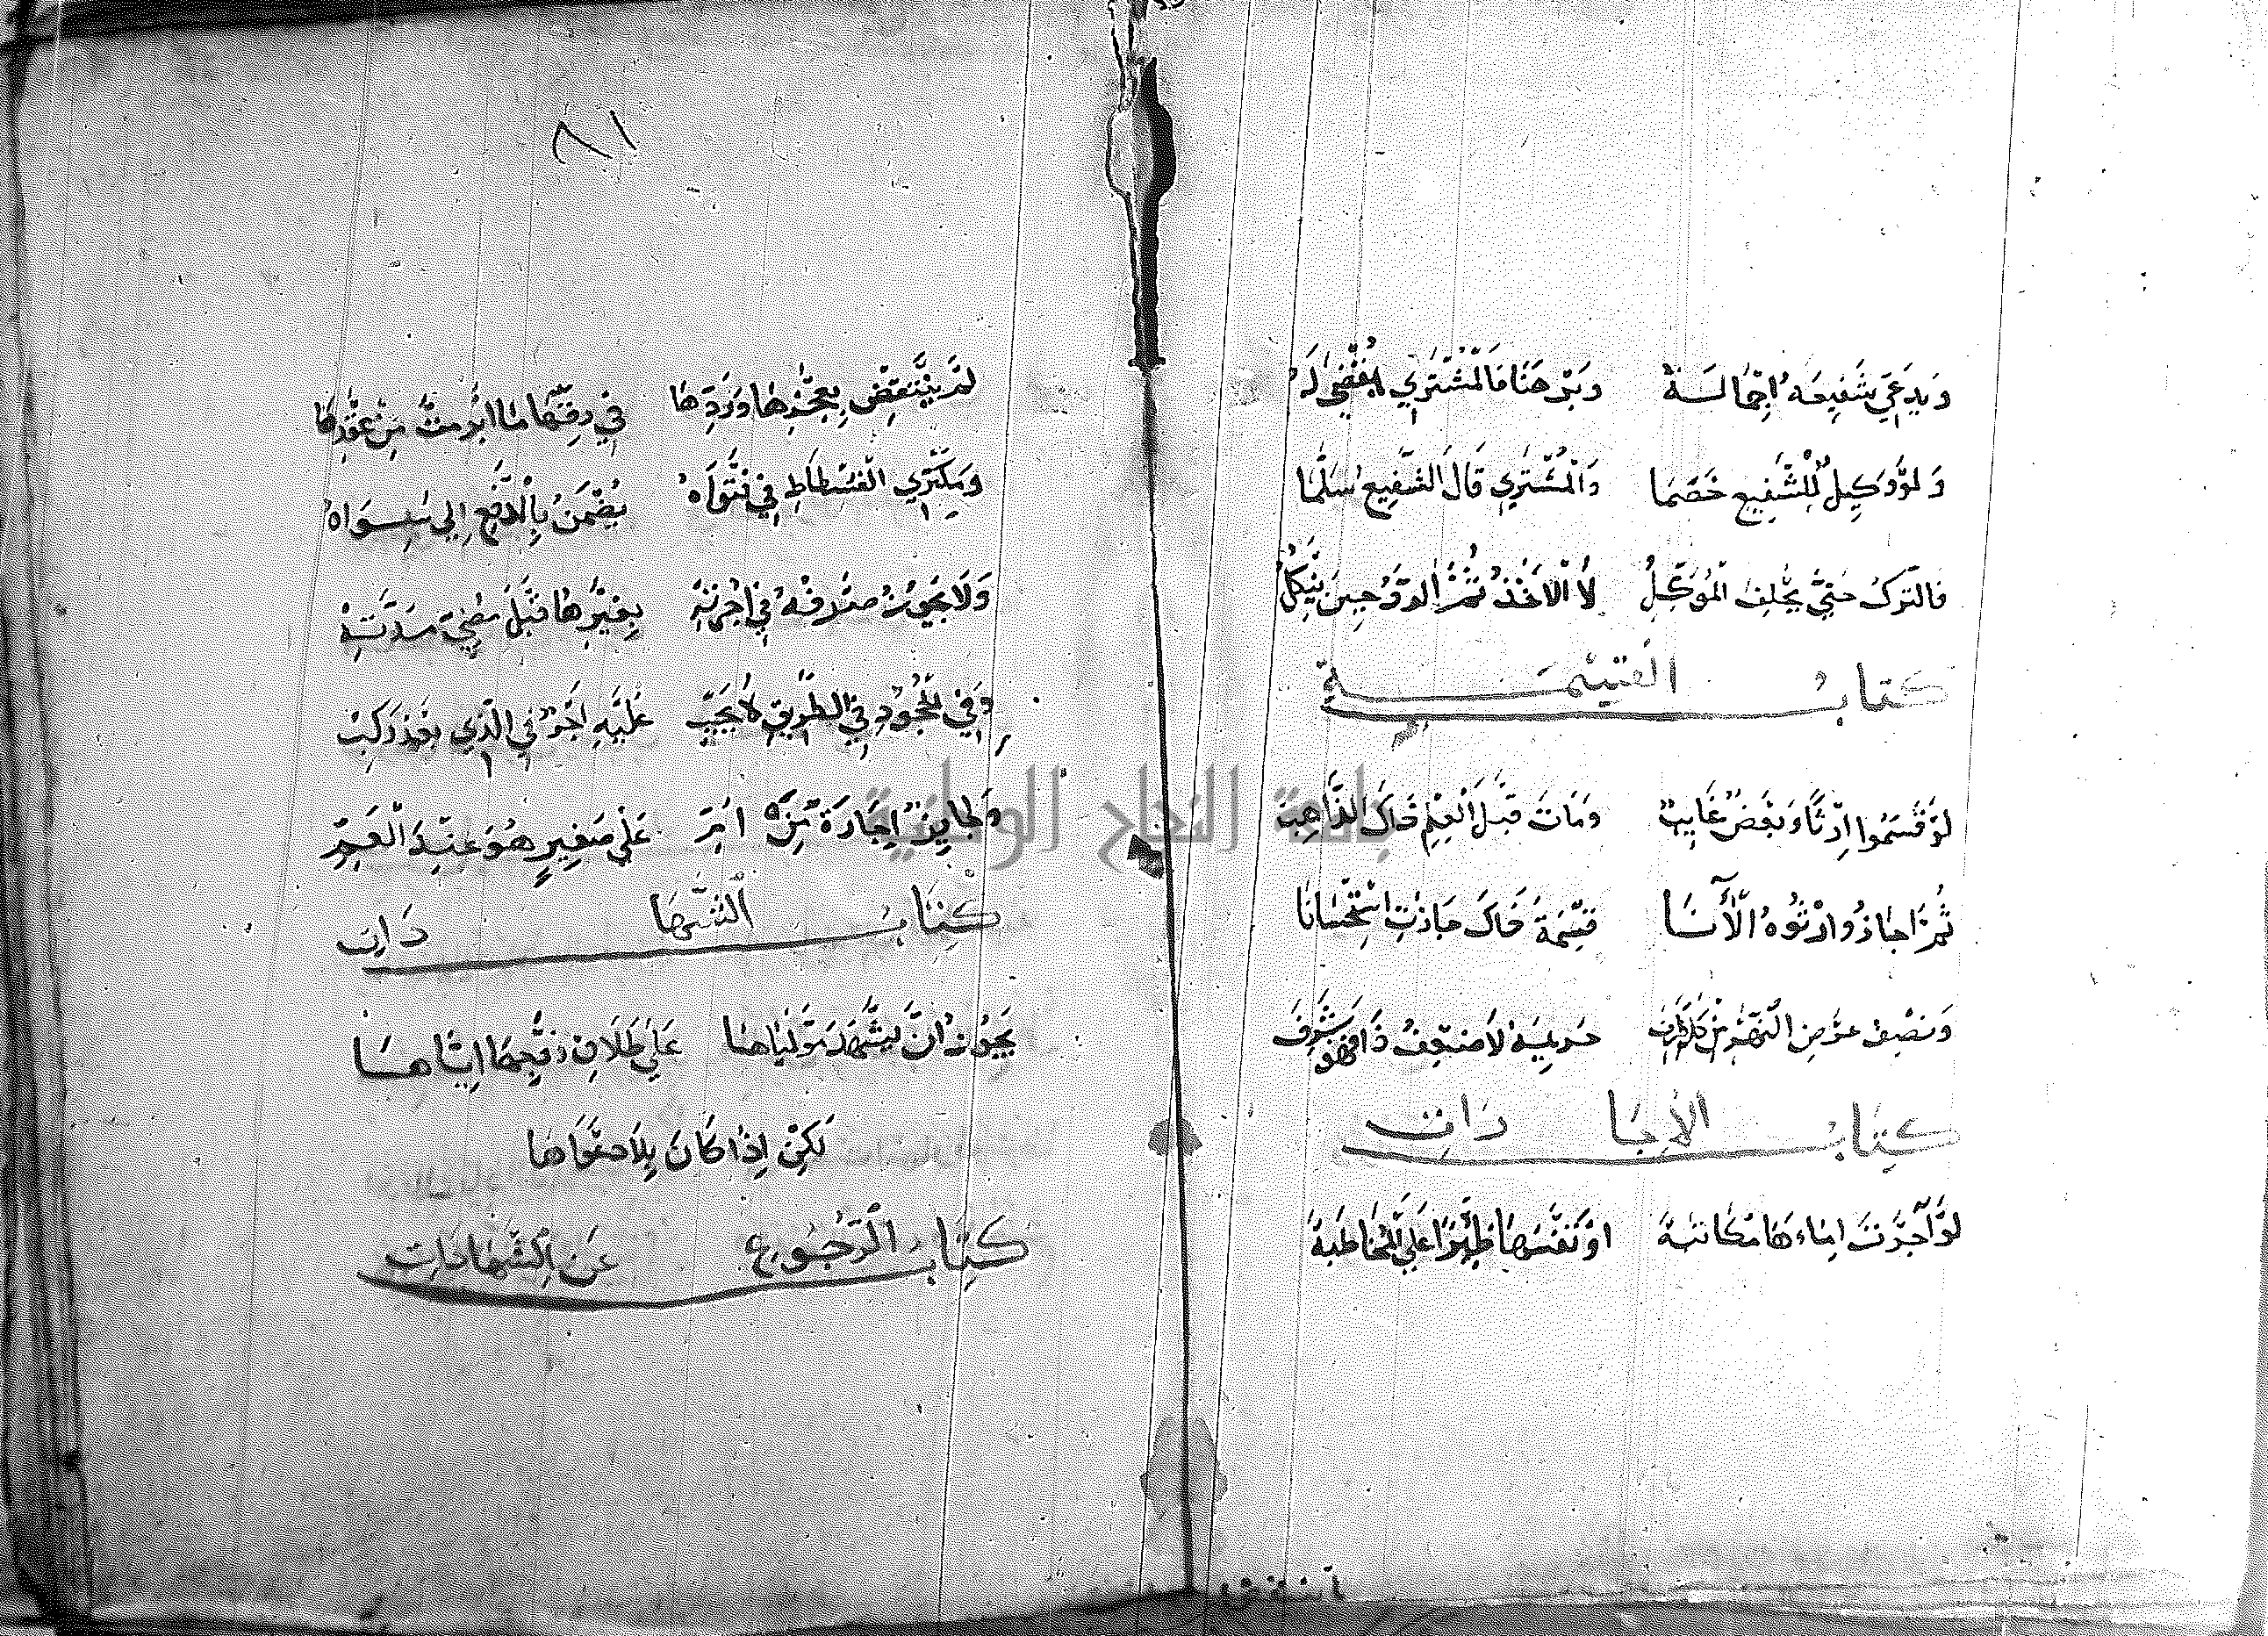 وَيَدَّعِي شَفِيعُهُ اِجْمَالَهْ وَبَرْهَنَا فَالْمُشْتَرِي يُقْضَى لَهُ
وَلَوْ وَكِيلٌ لِلشَّفِيعِ خَصَمَا وَالْمُشْتَرِي قَالَ الشَّفِيعُ سَلَّمَا
فَالتَّرْكُ حَتَّى يَحْلِفَ الْمُوَكِّلُ لَا الْاَخْذُ ثُمَّ الرَّدُّ حِينَ يَنْكِلُ
كتابُ القِسْمَةِ
لَوْ قَسَمُوا اِرْثًا وَبَعْضٌ غَايِبٌ وَمَاتَ قَبْلَ الْعِلْمِ ذَاكَ الذَّاهِبُ
ثُمَّ اَجَازُوا ارِثُوهُ الْآنَا قِسْمَةَ ذَاكَ جَازَتِ اسْتِحْسَانَا
وَنِصْفُ عَرْضِ النَّهْرِ مِنْ كل طَرَفْ حَرِيمُهُ لَا ضِعْفُ ذَا فَهْوَ شَرَفْ
كِتَابُ الْاِجَارَاتِ
لَوْ آجَرَتْ اِمَاءَهَا مُكَاتَبَةْ اَوْ نَفْسَهَا ظِئْرًا عَلَى الْمُخَاطَبَةْ
٨١
لَمْ يَنْتَقِضْ بِعَجْزِهَا وَرَدِّهَا فِي رِقِّهَا مَا اَبْرَمَتْ مِنْ عَقْدِهَا
وَمُكْتَرِي الْفُسْطَاطِ فِي نَتْوَاهُ يُضْمَنُ بِالدَّفْعِ اِلَى سِوَاهُ
وَلَا يَجُوزُ صَرْفُهُ فِي اُجْرَتِهْ بِغَيْرِهَا قَبْلَ مُضِيِّ مُدَّتِهْ
وَفِي الْجُحُودِ فِي الطَّرِيقِ لَا يَجِبْ عَلَيْهِ اَجْرٌ فِي الَّذِي بَعْدُ رَكِبْ
وَجَايِزٌ اِجَارَةٌ مِنْ اُمِّ عَلَى صَغِيرٍ هُوَ عِنْدَ الْعَمِّ
كِتَابُ الشَّهَادَاتِ
يَجُوزُ اَنْ يَشْهَدَ مَوْلَيَاهَا عَلَى طَلَاقِ زَوْجِهَا اِيَّاهَا
لَكِنْ اِذَا كَانَ بِلَا دَعْوَاهَا
كِتَابُ الرُّجُوعِ عَنِ الشَّهَادَاتِ
جامعة النجاح الوطنية